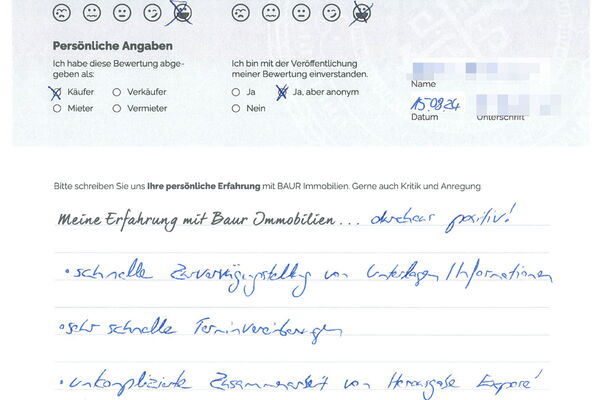 Persönliche Angaben
Ich habe diese Bewertung abge-
geben als:
Käufer Verkäufer
Mieter Vermieter
Ich bin mit der Veröffentlichung
meiner Bewertung einverstanden.
Ja Ja, aber anonym
Nein
Name
15.08.24
Datum Unterschrift
Bitte schreiben Sie uns Ihre persönliche Erfahrung mit BAUR Immobilien. Gerne auch Kritik und Anregung.
Meine Erfahrung mit Baur Immobilien... durchaus positiv!
• schnelle Zurverfügungstellung von Unterlagen / Informationen
• sehr schnelle Terminvereinbarungen
• unkomplizierte Zusammenarbeit von Herausgabe Exposé